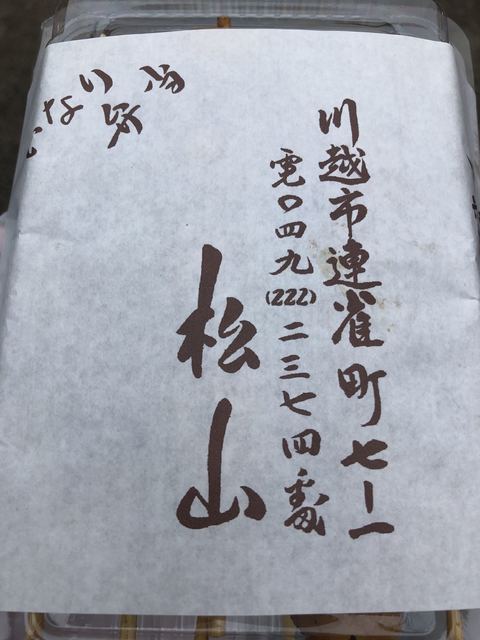 川越市連雀町七ー一
電〇四九(222)二三七四番
松山